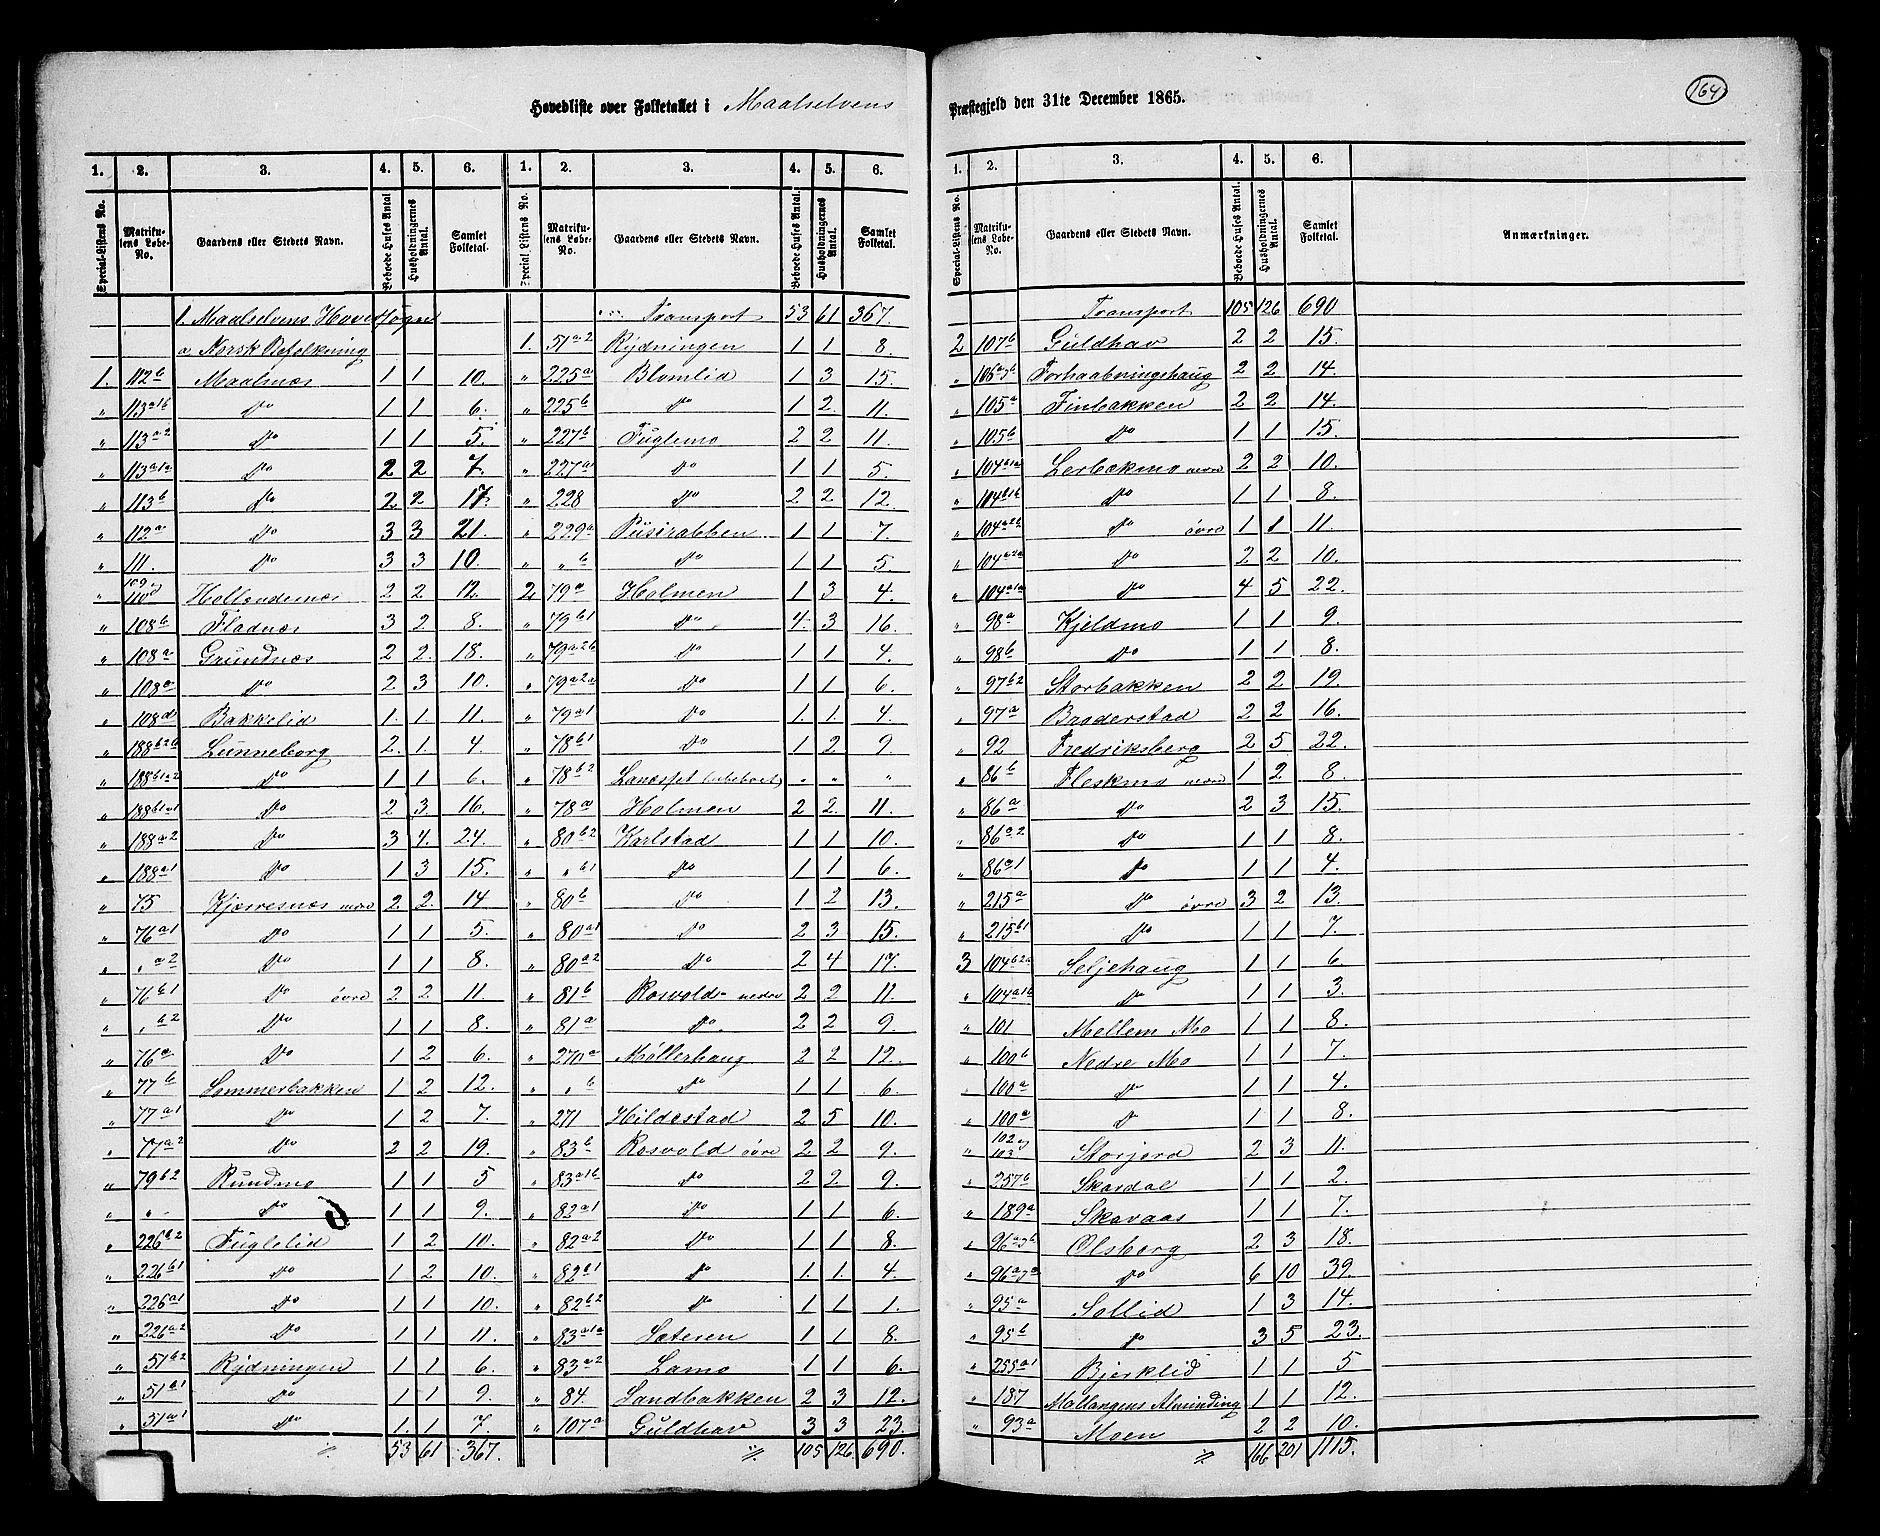 Hovedliste over Folketallet i Maalselvens Præstegjeld den 31te December 1865.
164
1. 2. 3. 4. 5. 6. 1. 2. 3. 4. 5. 6.
Special-Listens No. Matrikulens Løbe-No. Gaardens eller Stedets Navn. Beboede Huses Antal Husholdningernes Antal. Samlet Folketal. Special-Listens No. Matrikulens Løbe-No. Gaardens eller Stedets Navn. Beboede Huses Antal. Husholdningernes Antal. Samlet Folketal.
1. Maalselvens Hovedsogn
a. Norsk Befolkning
1. 112b Maalnæs 1 1 10.
" 113a1b Do 1 1 6.
" 113a2 Do 1 1 5.
" 113a1a Do 2 2 7.
" 113b Do 2 2 17.
" 112a Do 3 3 21.
" 111. Do 3 3 10.
" 109 og 110 Hollendernæs 2 2 12.
" 108b Fladnæs 3 2 8.
" 108a Grundnæs 2 2. 18.
" 108a Do 2 3 10.
" 108a Bakkelid 1. 1. 11.
" 188b2b Lunneborg 2. 1. 4.
" 188b1a2 Do 1 1 6.
" 188b1a1 Do 2 3. 16.
" 188a2 Do 3 4. 24.
" 188a1 Do 1 3 15.
" 75 Kjærresnæs nedre 2 2. 14
" 76a1 Do 1 1 5.
" " a2 Do 1 1 8.
" 76b1 Do øvre 2 2 11.
" " b2 Do 1 1 8.
" 76a Do 1 2 6.
" 77b Sommerbakken 1 2 12.
" 77a1 Do 1 2 7.
" 77a2 Do 2 2 19.
" 79b2 Rundmo 1 1 5
" " Do 1 1 9.
" 226a2 Fuglelid 1 2 10.
" 226b1 Do 1 2 10.
" 226a1 Do 1 1 10.
" 226a2 Do 1 1 11.
" 51b2 Rydningen 1 1 6.
" 51a1 Do 1 1 9.
" 51a1 Do 1. 1 7.
53 61 367.
Transport 53 61 367.
1. 51a2 Rydningen 1 1 8
" 225a Blomlid 1 3 15.
" 225b Do 1 2. 11.
" 227b Fuglemo 2 2 11.
" 227a Do 1 1 5.
" 228 Do 2 2 12.
" 229a Pustrabben 1 1 7.
" " b Do 1 1 5
2. 79a Holmen 1 3 4.
" 79b1 Do 4. 3 16.
" 79a2b Do 1 1 4.
" 79a2a Do 1 1 6.
" 79a1 Do 1. 1. 4.
" 78b1 Do 1 2 9
" 78b2 (ubeboet) " " "
" 78a Holmen 2 2. 11.
" 80b2 Karlstad 1 1 10.
" " b1 Do 1 1 6.
" 80b Do 1 2 13.
" 80a1 Do 2 3 15.
" 80a2 Do 2 4 17.
" 81b Rosvold nedre 2 2 11.
" 81a Do 2 2 9.
" 270a Møllerhaug 2 2 12.
" " b Do 1 1 6.
" 271 Hildestad 2 5 10.
" 83b Rosvold øvre 2 2 9.
" 83a1b Do 2 2 9.
" 82a1 Do 1 1 6.
" 82a2 Do 1 1 8.
" 82b1 Do 1. 1. 4.
" 82b2 Do 1 1 1.
" 83a1a Sæteren 1 1 8.
" 83a2 Lamo 1 1 6.
" 84. Sandbakken 2 3 12.
" 107a Guldhav 3 3 23.
105 126 690.
1. 2. 3. 4. 5. 6.
Special-Listens No. Matrikulens Løbe-No. Gaardens eller Stedets Navn. Beboede Huses Antal. Husholdningernes Antal. Samlet Folketal. Anmærkninger.
Transport 105 126 690
2 107b Guldhav 2 2 15.
" 106a&b Forhaabningshaug 2 2 14.
" 105a Finbakken 2 2 14.
" 105b Do 1 1 15.
" 104b1a Lerbækmo nedre 2 2 10.
" 104b1b Do 1 1 8.
" 104a2b Do øvre 1 1 11.
" 104a2a Do 2 2 10.
" 104a1a Do 4 5 22.
" 98a Kjeldmo 1 1 9.
" 98b Do 1 1 8.
" 97b2 Storbakken 2 2 19.
" 97a Broderstad 2 2 16.
" 92 Fredriksberg 2 5 22.
" 86b Fleskmo nedre 1 2 8.
" 86a Do 2 3 15.
" 86a2 Do 1 1 8.
" 86a1 Do 1 1 4.
" 215a Do øvre 3 2 13.
" 215b1 Do 1 1 7.
3 104b2a Seljehaug 1 1 6
" 104a1b Do 1 1 3.
" 101 Mellem Mo 1 1 8.
" 100b Nedre Mo 1 1 7.
" 100a Do 1 1 4.
" 100a Do 1 1 8.
" 102 og 103 Storjord 2 3 11.
" 257b Skardal 1 1 2.
" 189a Skavaas 1 1 7.
" 96a&b Olsborg 2 3 18.
" 96a&a Do 6 10 39.
" 95a Sollid 1 3 14.
" 95b Do 3 5 23.
" 255a1 Bjerklid 1 1 5
" 187 Mallangens Alminding 1 1 12.
" 93a Moen 2 2 10.
166 201 1115.